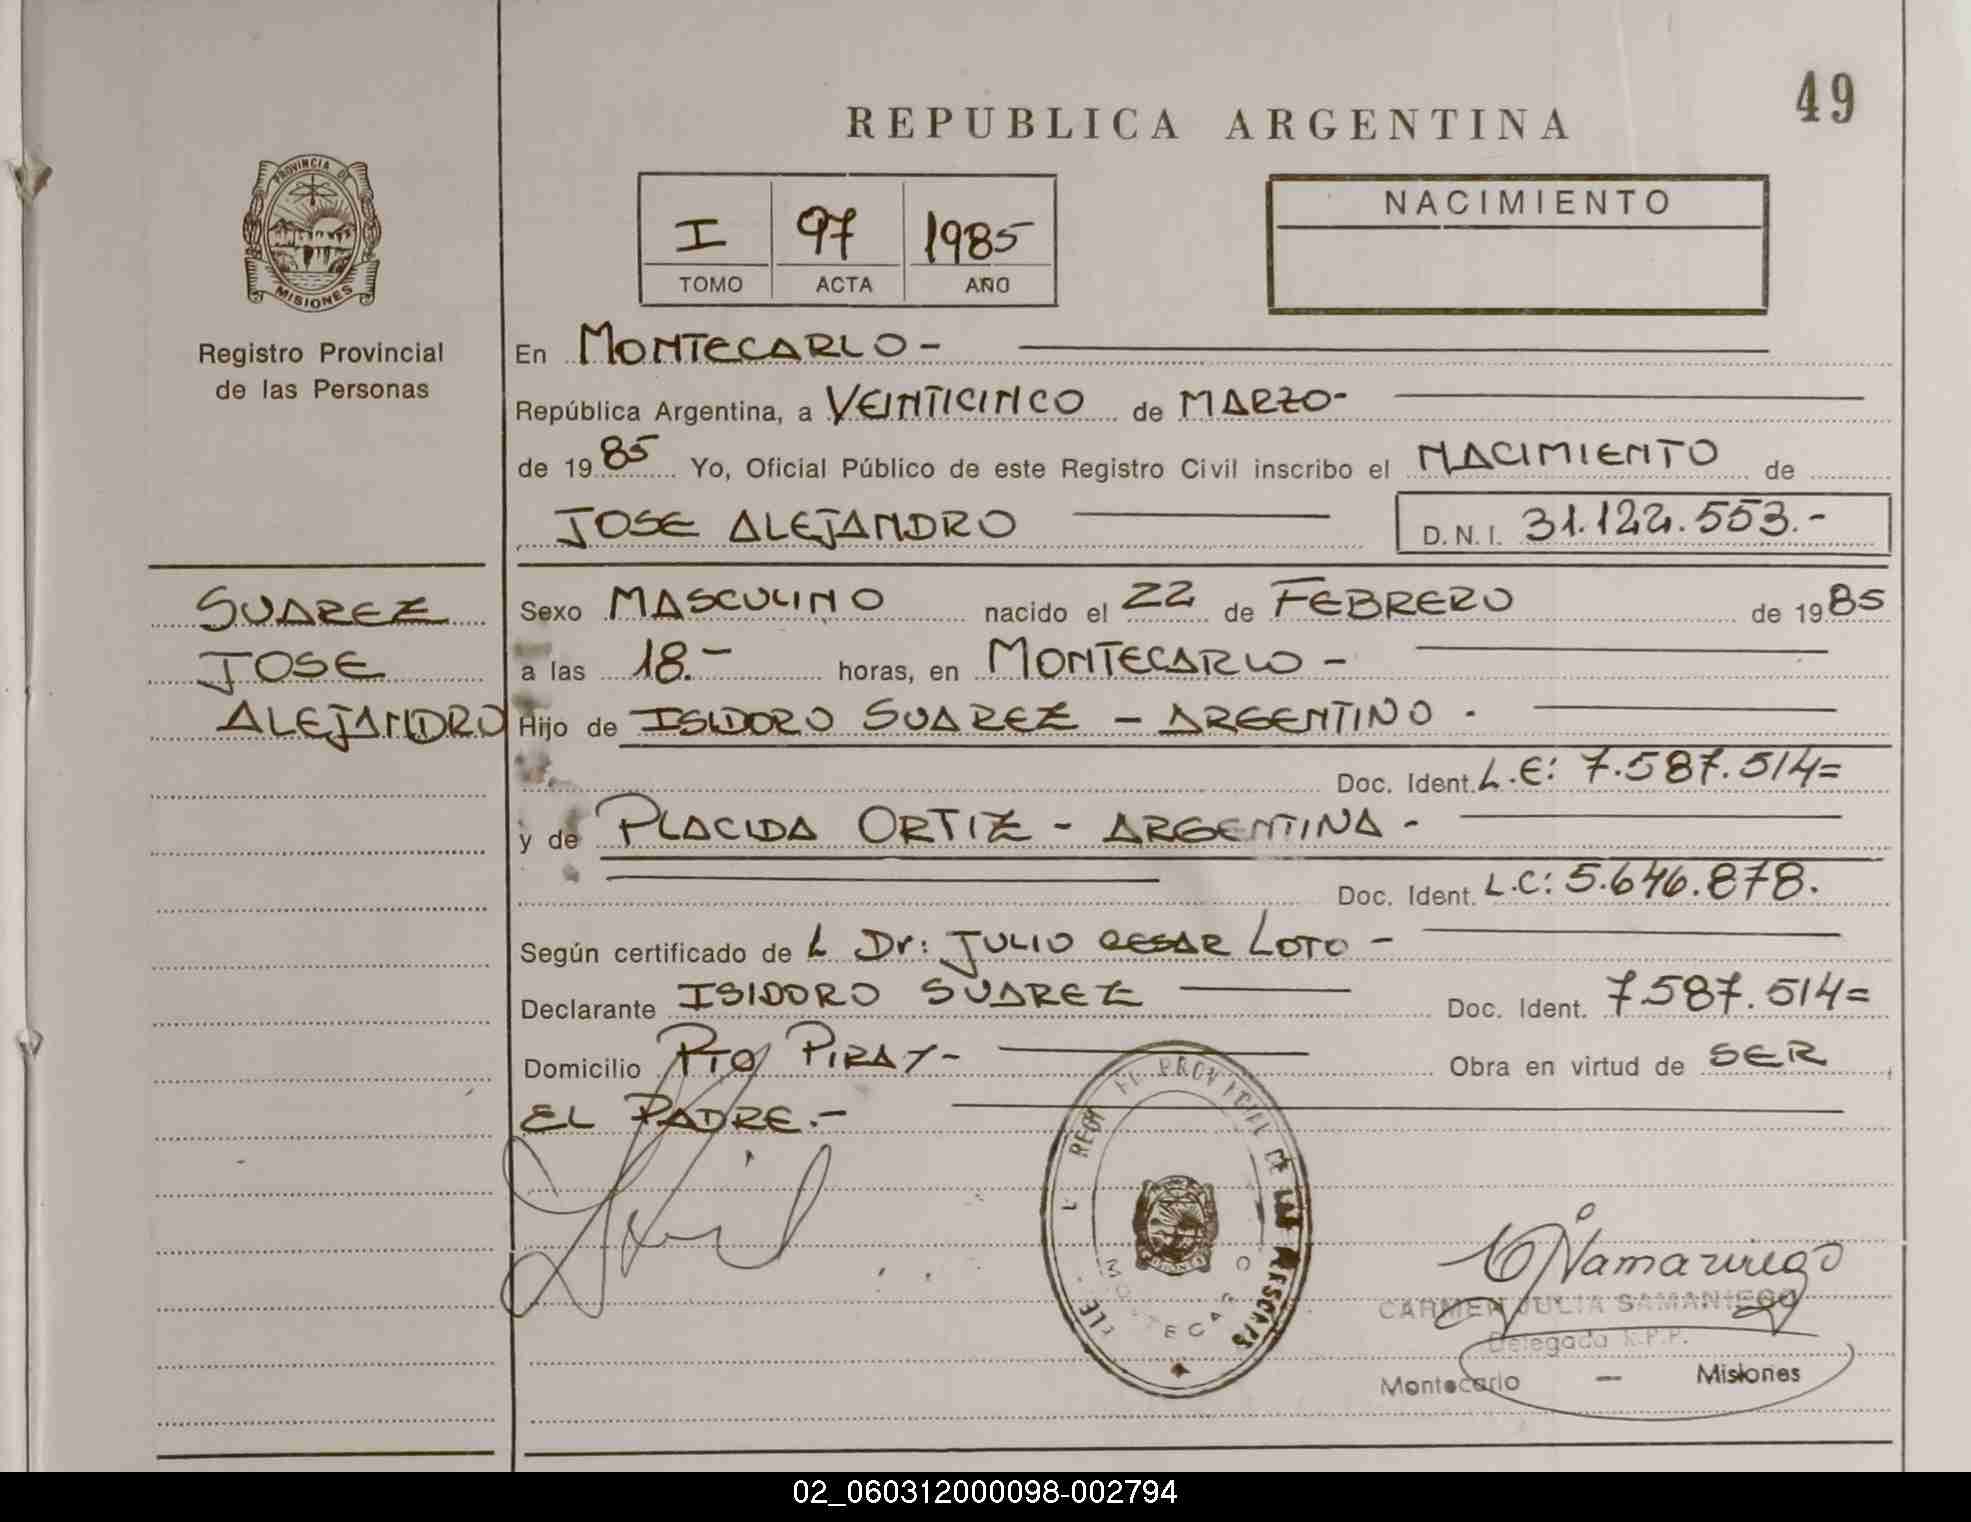 49
REPUBLICA ARGENTINA
PROVINCIA DE
MISIONES
I 97 1985
TOMO ACTA AÑO
NACIMIENTO
Registro Provincial
de las Personas
En MONTECARLO-
República Argentina, a VEINTICINCO de MARZO-
de 1985 Yo, Oficial Público de este Registro Civil inscribo el NACIMIENTO de
JOSE ALEJANDRO D.N.I. 31.122.553.-
SUAREZ
JOSE
ALEJANDRO
Sexo MASCULINO nacido el 22 de FEBRERO de 1985
a las 18.- horas, en MONTECARLO -
Hijo de ISIDORO SUAREZ - ARGENTINO -
Doc. Ident. L.E: 7.587.514=
y de PLACIDA ORTIZ - ARGENTINA -
Doc. Ident. L.C: 5.646.878.
Según certificado de L Dr: JULIO CESAR LOTO -
Declarante ISIDORO SUAREZ Doc. Ident. 7.587.514=
Domicilio PTO PIRAY- Obra en virtud de SER
EL PADRE.-
PROVINCIAL DE LAS PERSONAS
MISIONES
MONTECARLO
CARMEN JULIA SAMANIEGO
Delegada R.P.P.
Montecarlo - Misiones
02_060312000098-002794